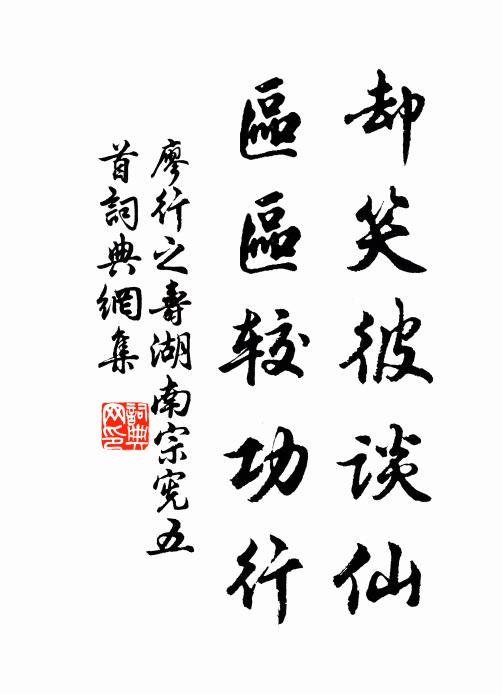 却笑彼谈仙
區區较功行
廖行之壽湖南宗宪五
首詞典網集
詞典
网印